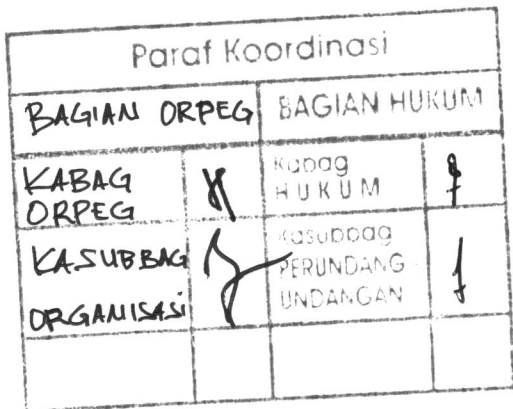 Paraf Koordinasi
BAGIAN ORPEG
BAGIAN HUKUM
KABAG
ORPEG
Kabag
HUKUM
KASUBBAG
ORGANISASI
Kasubbag
PERUNDANG -
UNDANGAN